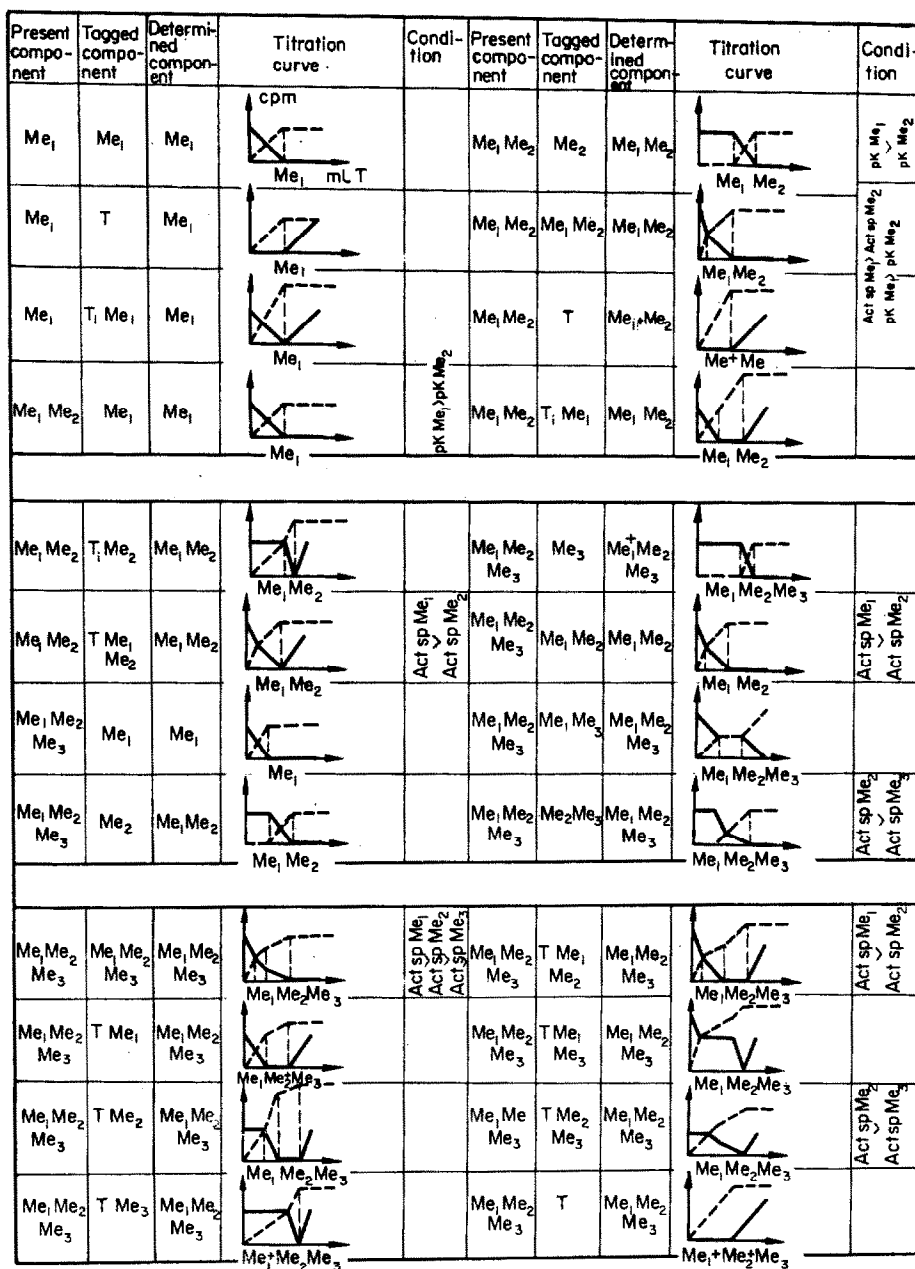 Present compo- nent | Tagged compo- nent | Determi- ned component | Titration curve | Condi- tion | Present compo- nent | Tagged compo- nent | Determ- ined compon- ent | Titration curve | Condi- tion
Me₁ | Me₁ | Me₁ | cpm Me₁ mL T | | Me₁ Me₂ | Me₂ | Me₁ Me₂ | Me₁ Me₂ | pK Me₁ > pK Me₂
Me₁ | T | Me₁ | Me₁ | | Me₁ Me₂ | Me₁ Me₂ | Me₁ Me₂ | Me₁ Me₂ | Act sp Me₁ > Act sp Me₂ pK Me₁ > pK Me₂
Me₁ | T₁ Me₁ | Me₁ | Me₁ | | Me₁ Me₂ | T | Me₁+Me₂ | Me+ Me
Me₁ Me₂ | Me₁ | Me₁ | Me₁ | pK Me₁>pK Me₂ | Me₁ Me₂ | T₁ Me₁ | Me₁ Me₂ | Me₁ Me₂
Me₁ Me₂ | T₁ Me₂ | Me₁ Me₂ | Me₁ Me₂ | | Me₁ Me₂ Me₃ | Me₃ | Me₁+ Me₂ Me₃ | Me₁ Me₂ Me₃
Me₁ Me₂ | T Me₁ Me₂ | Me₁ Me₂ | Me₁ Me₂ | Act sp Me₁ > Act sp Me₂ | Me₁ Me₂ Me₃ | Me₁ Me₂ | Me₁ Me₂ | Me₁ Me₂ | Act sp Me₁ > Act sp Me₂
Me₁ Me₂ Me₃ | Me₁ | Me₁ | Me₁ | | Me₁ Me₂ Me₃ | Me₁ Me₃ | Me₁ Me₂ Me₃ | Me₁ Me₂ Me₃
Me₁ Me₂ Me₃ | Me₂ | Me₁ Me₂ | Me₁ Me₂ | | Me₁ Me₂ Me₃ | Me₂ Me₃ | Me₁ Me₂ Me₃ | Me₁ Me₂ Me₃ | Act sp Me₂ > Act sp Me₃
Me₁ Me₂ Me₃ | Me₁ Me₂ Me₃ | Me₁ Me₂ Me₃ | Me₁ Me₂ Me₃ | Act sp Me₁ > Act sp Me₂ > Act sp Me₃ | Me₁ Me₂ Me₃ | T Me₁ Me₂ | Me₁ Me₂ Me₃ | Me₁ Me₂ Me₃ | Act sp Me₁ > Act sp Me₂
Me₁ Me₂ Me₃ | T Me₁ | Me₁ Me₂ Me₃ | Me₁ Me₂+Me₃ | | Me₁ Me₂ Me₃ | T Me₁ Me₃ | Me₁ Me₂ Me₃ | Me₁ Me₂ Me₃
Me₁ Me₂ Me₃ | T Me₂ | Me₁ Me₂ Me₃ | Me₁ Me₂ Me₃ | | Me₁ Me Me₃ | T Me₂ Me₃ | Me₁ Me₂ Me₃ | Me₁ Me₂ Me₃ | Act sp Me₂ > Act sp Me₃
Me₁ Me₂ Me₃ | T Me₃ | Me₁ Me₂ Me₃ | Me₁+ Me₂ Me₃ | | Me₁ Me₂ Me₃ | T | Me₁ Me₂ Me₃ | Me₁+ Me₂+ Me₃